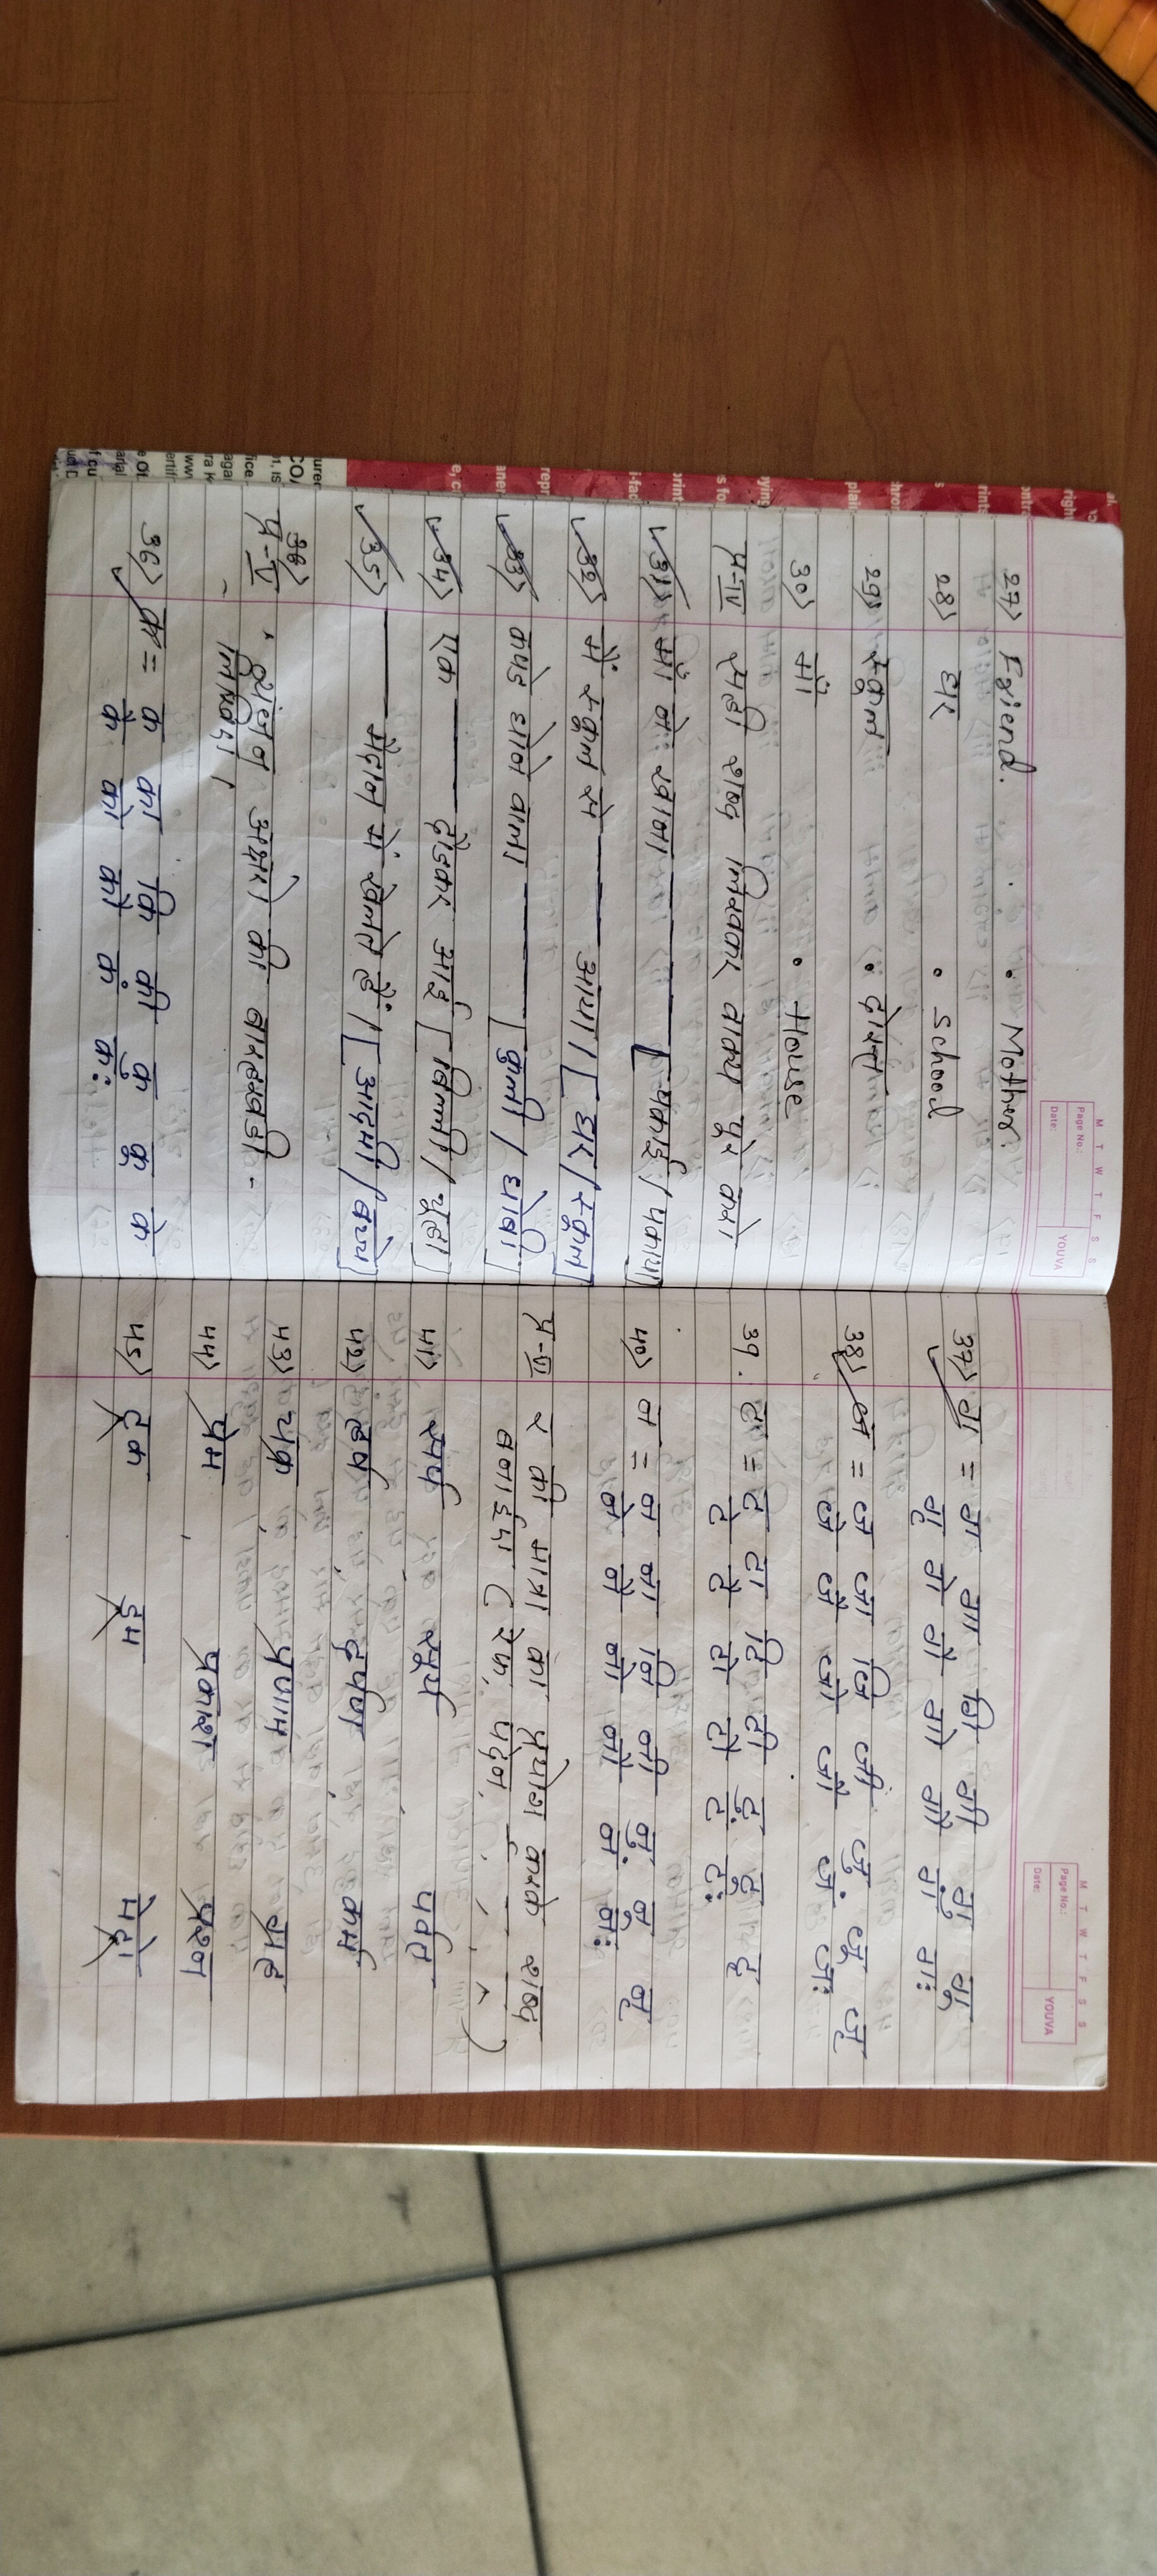 M T W T F S S
Page No.:
Date:
YOUVA
27) Friend. • Mother.
28) घर • school
29) स्कूल • दोस्त
30) माँ • House
प्र-IV सही शब्द लिखकर वाक्य पूरे करो
31) माँ ने खाना ——— [पकाई / पकाया]
32) मैं स्कूल से ——— आया। [घर / स्कूल]
33) कपड़े धोने वाला ——— [कुली / धोबी]
34) एक ——— दौड़कर आई [बिल्ली / चूहा]
35) ——— मैदान में खेलते हैं। [आदमी / बच्चे]
36)
प्र-V अक्षरो की बारहखडी -
लिखिए।
36) क = क का कि की कु कू के
कै को कौ कं कः
M T W T F S S
Page No.:
Date:
YOUVA
37) ग = ग गा गि गी गु गू
गे गै गो गौ गं गः
38) ज = ज जा जि जी जु जू
जे जै जो जौ जं जः
39. ट = ट टा टि टी टु टू
टे टै टो टौ टं टः
40) न = न ना नि नी नु नू
ने नै नो नौ नं नः
प्र-VI र की मात्रा का प्रयोग करके शब्द
बनाईए। (रेफ, पदेन,
41) सर्प सूर्य पर्वत
42) हर्ष दर्पण कर्म
43) चक्र प्रणाम ग्रह
44) प्रेम प्रकाश प्रश्न
45) ट्रक ड्रम मेट्रो